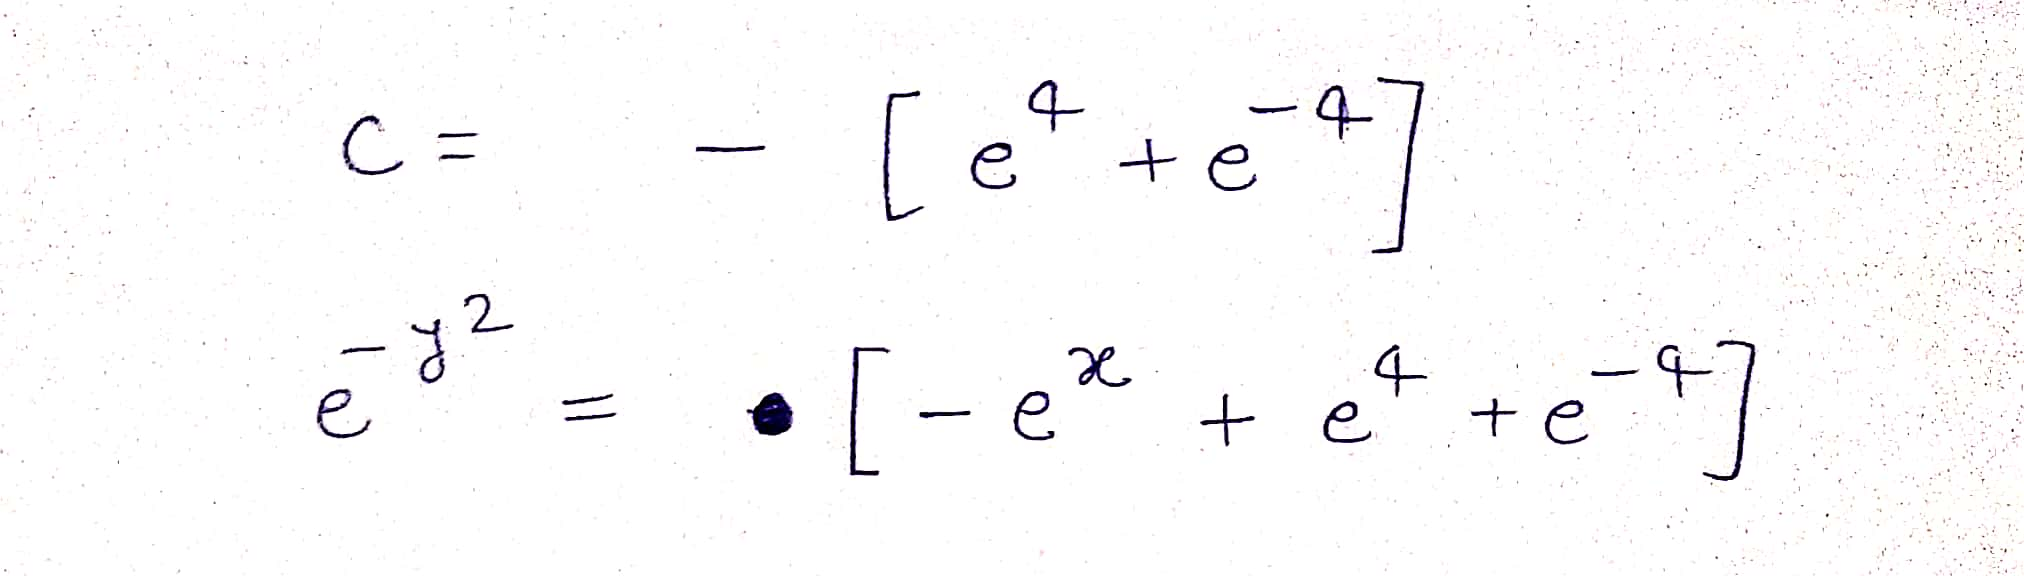 C = - [e⁴ + e⁻⁴]
e^{-y²} = [-eˣ + e⁴ + e⁻⁴]